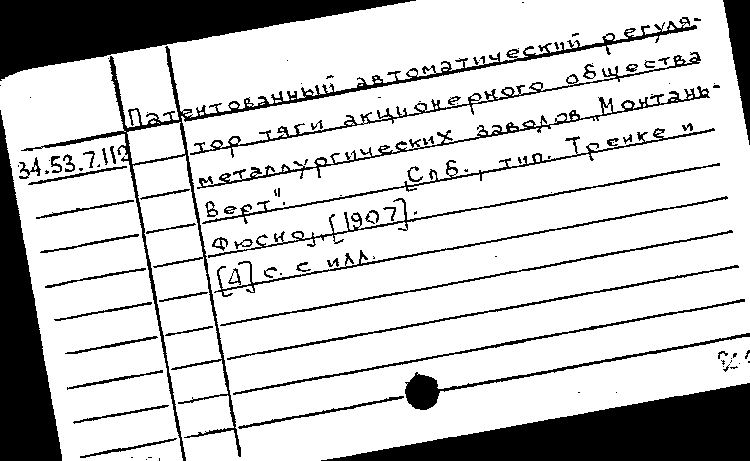 Патентованный автоматический регуля-
34.53.7.112 тор тяги акционерного общества
металлургических заводов „Монтань-
Верт". [Спб., тип. Тренке и
Фюсно], [1907].
[4] с. с илл.